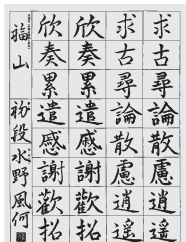 求古尋論散慮逍遥
求古尋論散慮逍遥
欣奏累遣慼謝歡招
欣奏累遣慼謝歡招
福山
初段水野風何